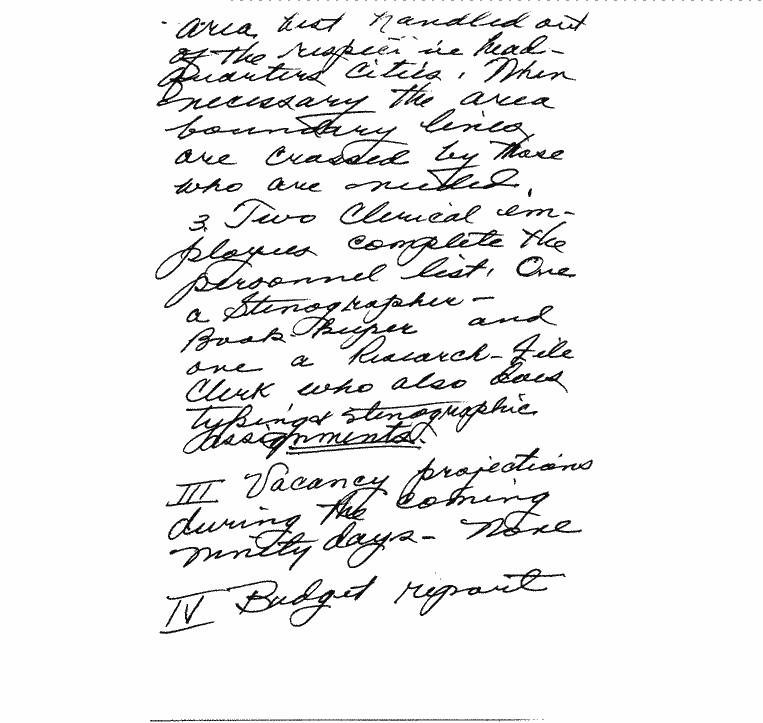 area, but handled out
of the respective head-
quarters cities. When
necessary the area
boundary lines
are crossed by those
who are needed.
3. Two Clerical em-
ployees complete the
personnel list. One
a Stenographer-
Book-keeper and
one a Research-File
Clerk who also does
typing & stenographic
assignments.
III Vacancy projections
during the coming
ninety days- None
IV Budget report